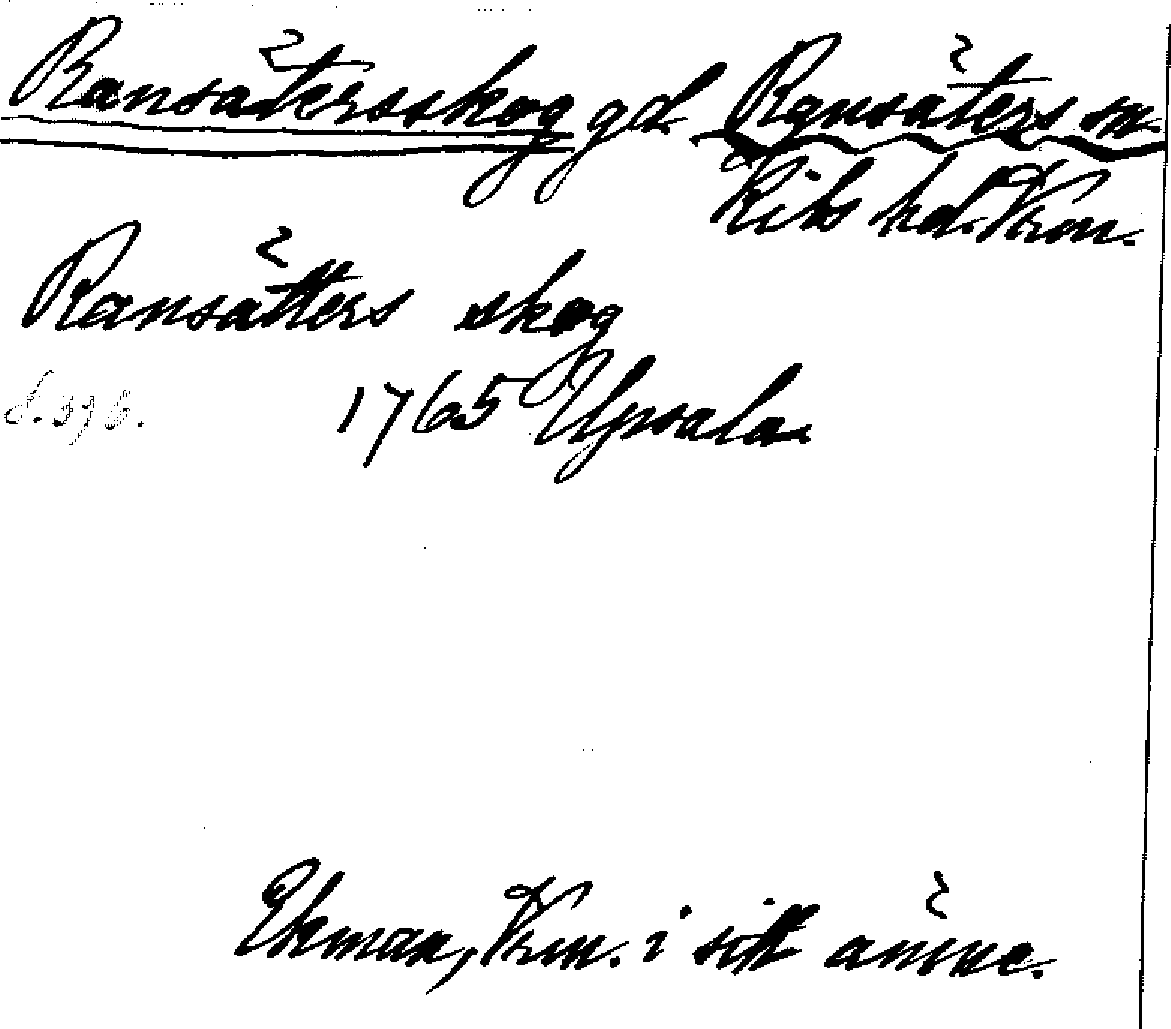 Ransätersskog gd. Ransäters sn.
Kils hd. Vrm.
Ransätters skog
s. 376. 1765 Upsala.
Ekman, Vrm. i sitt ämne.